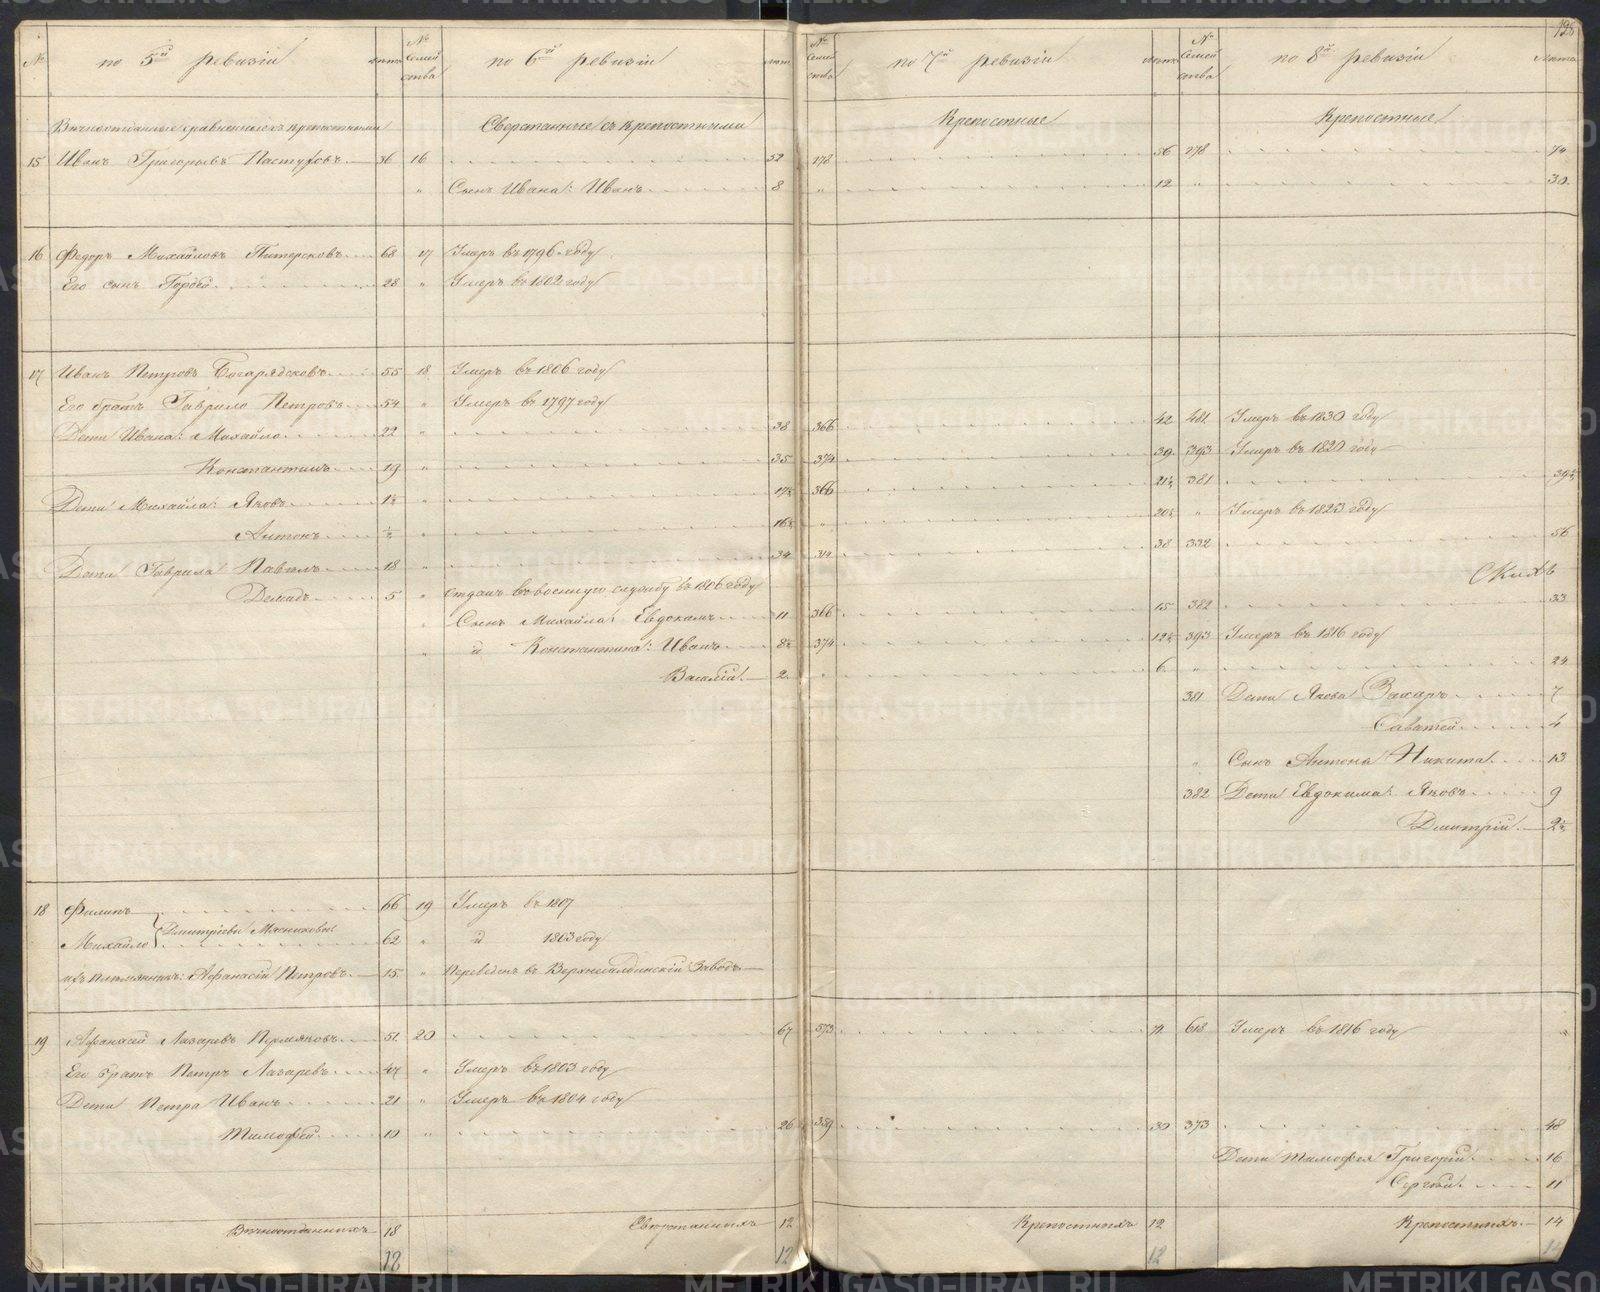 128
№ по 5й ревизіи лѣта № Семейства по 6й ревизіи лѣт № Семейства по 7й ревизіи лѣта № Семейства по 8й ревизіи Лѣта
Вѣчноотданные сравненные съ крепостными Сверстанные съ крепостными Крепостные Крепостные
15 Иванъ Григорьевъ Пастуховъ 36 16 52 178 56 278 74
" Сынъ Ивана: Иванъ 8 " 12 " 30
16 Федоръ Михайловъ Питерсковъ 68 17 Умеръ въ 1796 году
Его сынъ Гордей 28 " Умеръ въ 1802 году
17 Иванъ Петровъ Богарядсковъ 55 18 Умеръ въ 1806 году
Его братъ Гаврило Петровъ 54 " Умеръ въ 1797 году
Дети Ивана: Михайло 22 " 38 366 42 481 Умеръ въ 1830 году
Константинъ 19 " 35 374 39 393 Умеръ въ 1820 году
Дети Михайла: Яковъ 1½ " 17½ 366 21½ 381 39½
Антонъ ½ " 16½ " 20½ " Умеръ въ 1823 году
Дети Гаврила Павелъ 18 " 34 314 38 332 56
Демидъ 5 " Отданъ въ военную службу въ 1806 году
" Сынъ Михайла: Евдокимъ 11 366 15 382 33
" и Константина: Иванъ 8½ 374 12½ 393 Умеръ въ 1816 году
Василій 2 6 " 24
381 Дети Якова Захаръ 7
Саватей 4
" Сынъ Антона Никита 13
382 Дети Евдокима: Яковъ 9
Дмитрій 2½
18 Филипъ 66 19 Умеръ въ 1807
Михайло Дмитріевы Мясниковы 62 " и 1803 году
ихъ племянникъ: Афанасій Петровъ 15 " Переведенъ въ Верхнесалдинскій Заводъ
19 Афанасей Лазаревъ Пермяковъ 51 20 67 573 71 618 Умеръ въ 1816 году "
Его братъ Петръ Лазаревъ 47 " Умеръ въ 1803 году
Дети Петра Иванъ 21 " Умеръ въ 1804 году
Тимофей 10 " 26 359 30 373 48
Дети Тимофея Григорій 16
Сергѣй 11
Вѣчноотданныхъ 18 Сверстанныхъ 12 Крепостныхъ 12 Крепостныхъ 14
18 12 12 14
METRIKI.GASO-URAL.RU